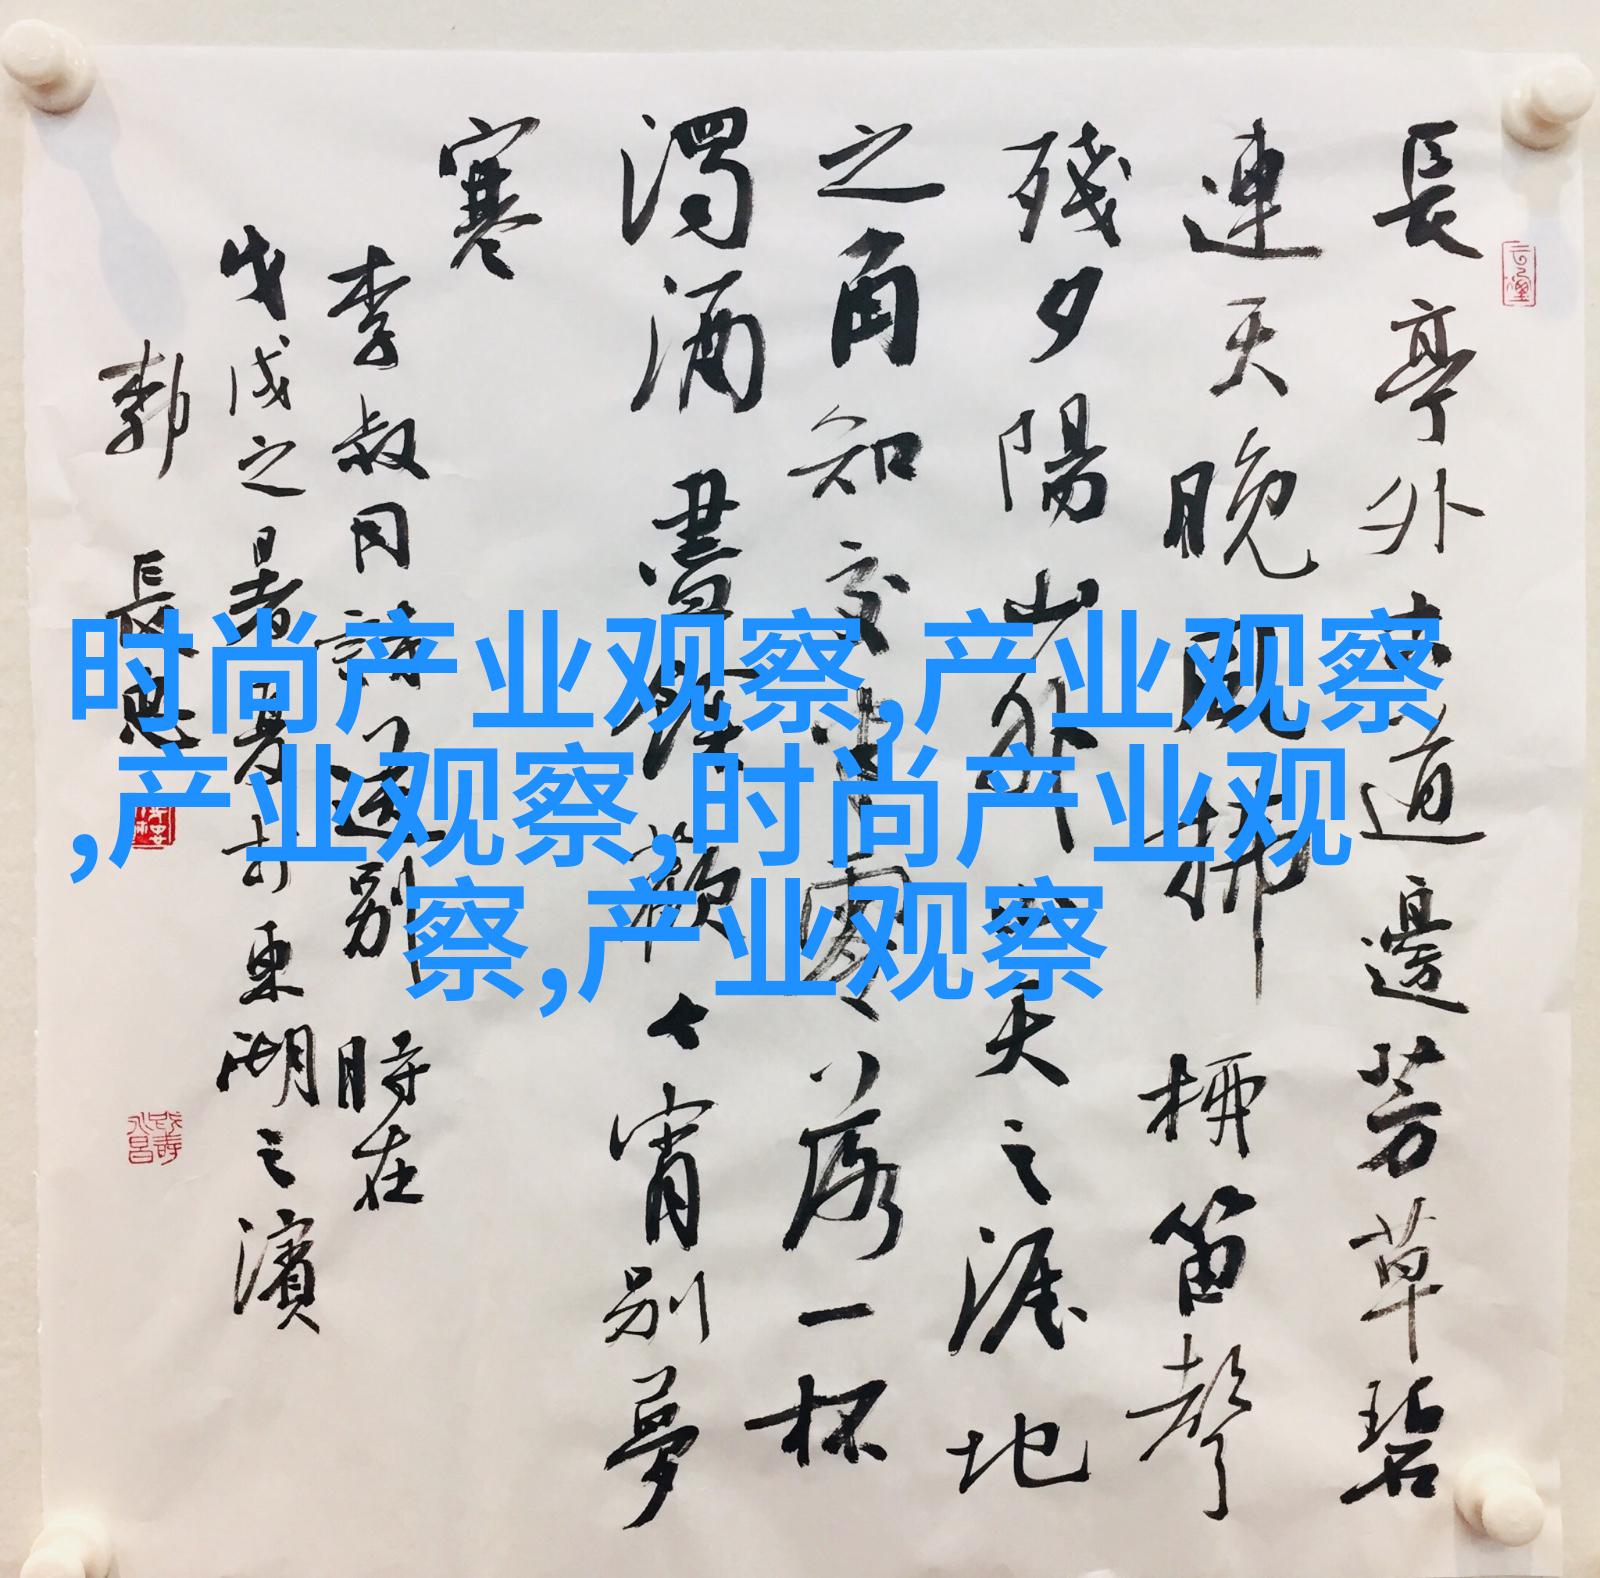 長亭外古道邊芳草碧
連天晚風拂柳笛聲
殘夕陽山外山天之涯地
之角知交半零落一杯
濁酒盡餘歡今宵別夢
寒
李叔同詩送別 時在
戊戌之暑月於東湖之濱
郭 長思
时尚产业观察,产业观察
,产业观察,时尚产业观
察,产业观察